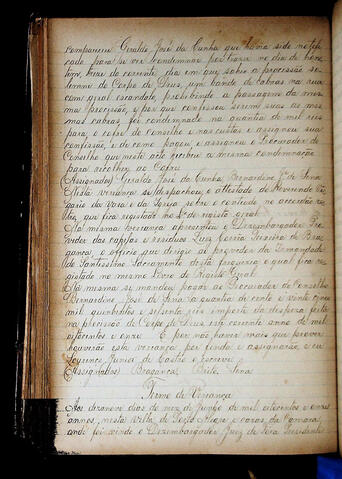 compareceu Geraldo José da Cunha que havia sido notifi
cado para se ver condemnar por trazer no dia de hon
tem, do corrente, dia em que sahio a procissão so-
lemne do Corpo de Deus, um bando de cabras na rua
com geral escandalo, prohibindo a passagem da mes
ma procissão, e por que confessou serem suas as mes
mas cabras, foi condemnado na quantia de mil reis
para o cofre do Conselho e nas custas e assignou sua
confissão, e de como pagou, assignou o Procurador do
Conselho que neste acto recebeu a mesma condemnação
para recolher ao Cofre
(Assignados) Geraldo José da Cunha, Bernardino José de Sena
Nesta veriança se despachou o attestado do Reverendo Vi
gario da Vara e da Igreja sobre o conteudo no accordão
que fica registado no L.º de registo geral
Na mesma veriança apresentou o Dezembargador Pro-
vedor das capellas e residuos Luiz Corrêa Teixeira de Bra
gança, o officio que dirigio ao da Irmandade
do Santissimo Sacramento desta freguezia o qual fica re-
gistado no mesmo Livro de Registo Geral.
Na mesma se mandou passar ao Procurador do Conselho
Bernardino José de Sena a quantia de cento e vinte cinco
mil quinhentos e sessenta reis importe da despeza feita
na procissão do Corpo de Deus este corrente anno de mil
oitocentos e onze. E por não haver mais que prover
houverão esta veriança por finda e assignarão e eu
Lourenço Junior de Castro o escrevi
(Assignados) Bragança. Brito. Sena
Termo de Veriança
Aos dezanove dias do mez de Junho de mil oitocentos e onze
annos, nesta Villa de Porto Alegre e cazas da Camara
onde foi vindo o Dezembargador Juiz de Fóra Presidente